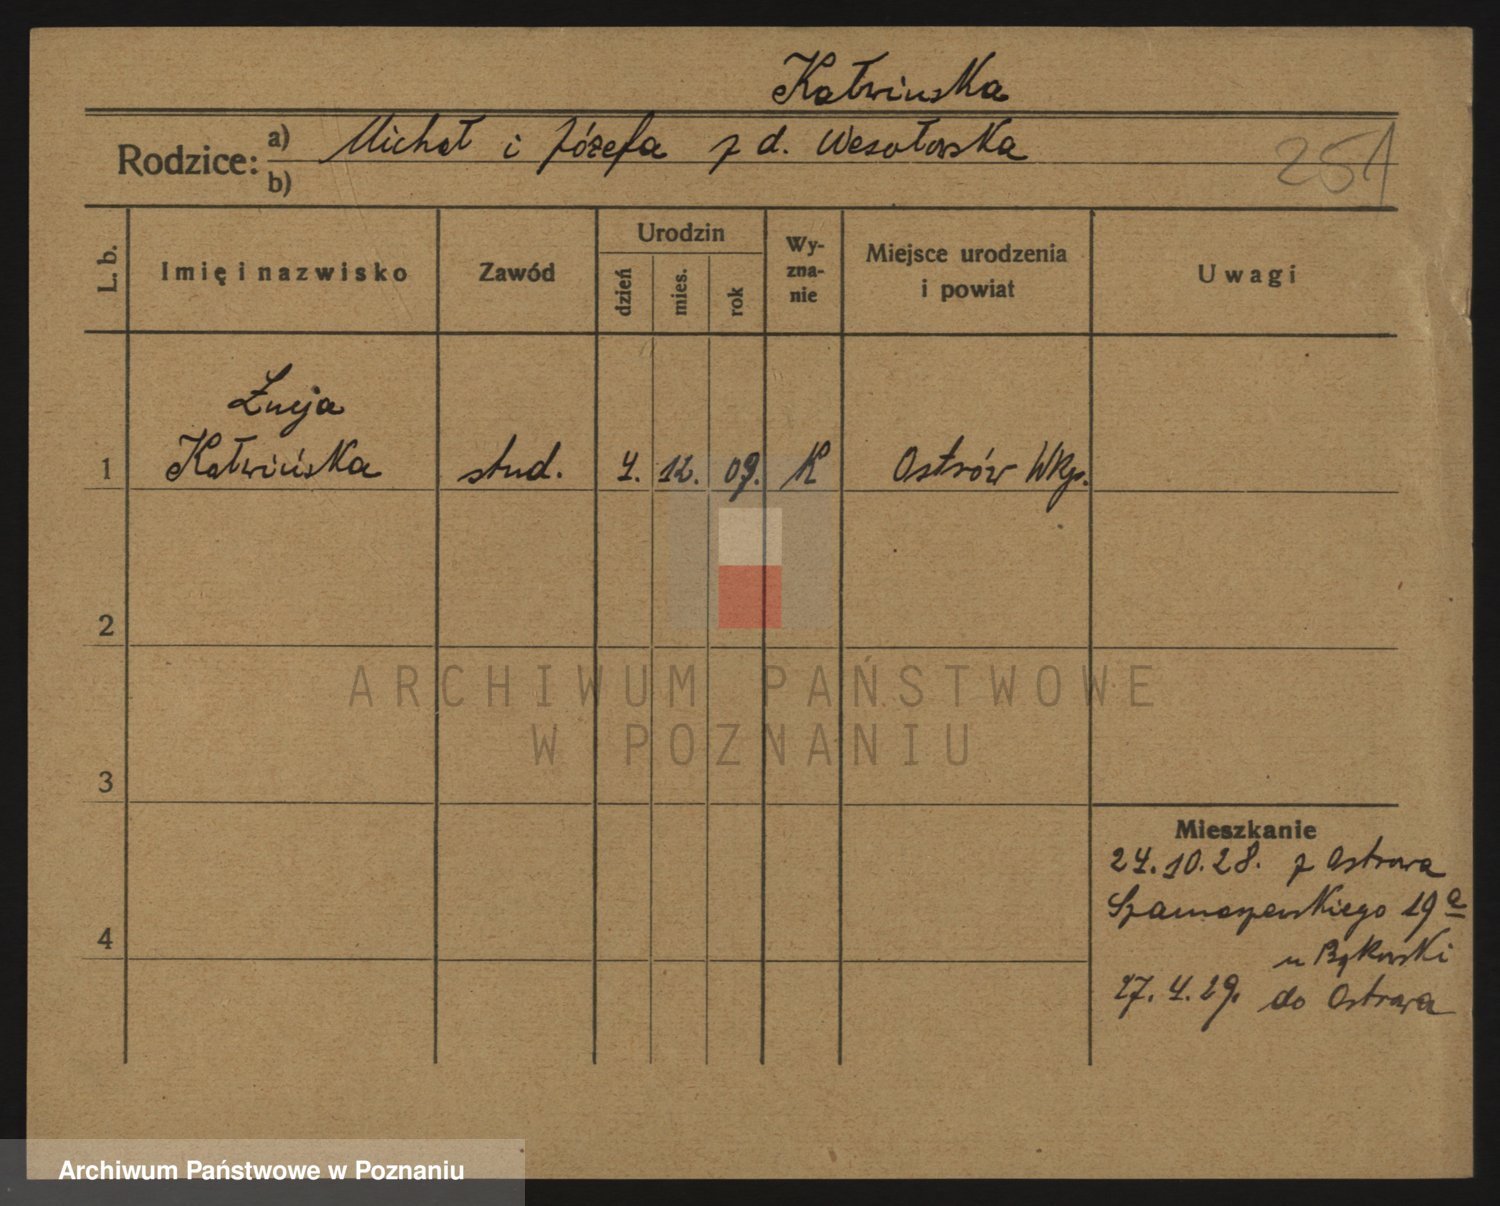 Kałwinska
Rodzice: a) Michał i Józefa z d. Wesołowska
b)
251
L. b.
Imię i nazwisko
Zawód
Urodzin
dzień
mies.
rok
Wy-
zna-
nie
Miejsce urodzenia
i powiat
Uwagi
Łucja
1 Kałwińska stud. 4. 12. 09. K Ostrów Wkp.
2
3
4
Mieszkanie
24.10.28. z Ostrowa
Szamarzewskiego 19a
u Bąkowski
27.4.29. do Ostrowa
ARCHIWUM PAŃSTWOWE
W POZNANIU
Archiwum Państwowe w Poznaniu